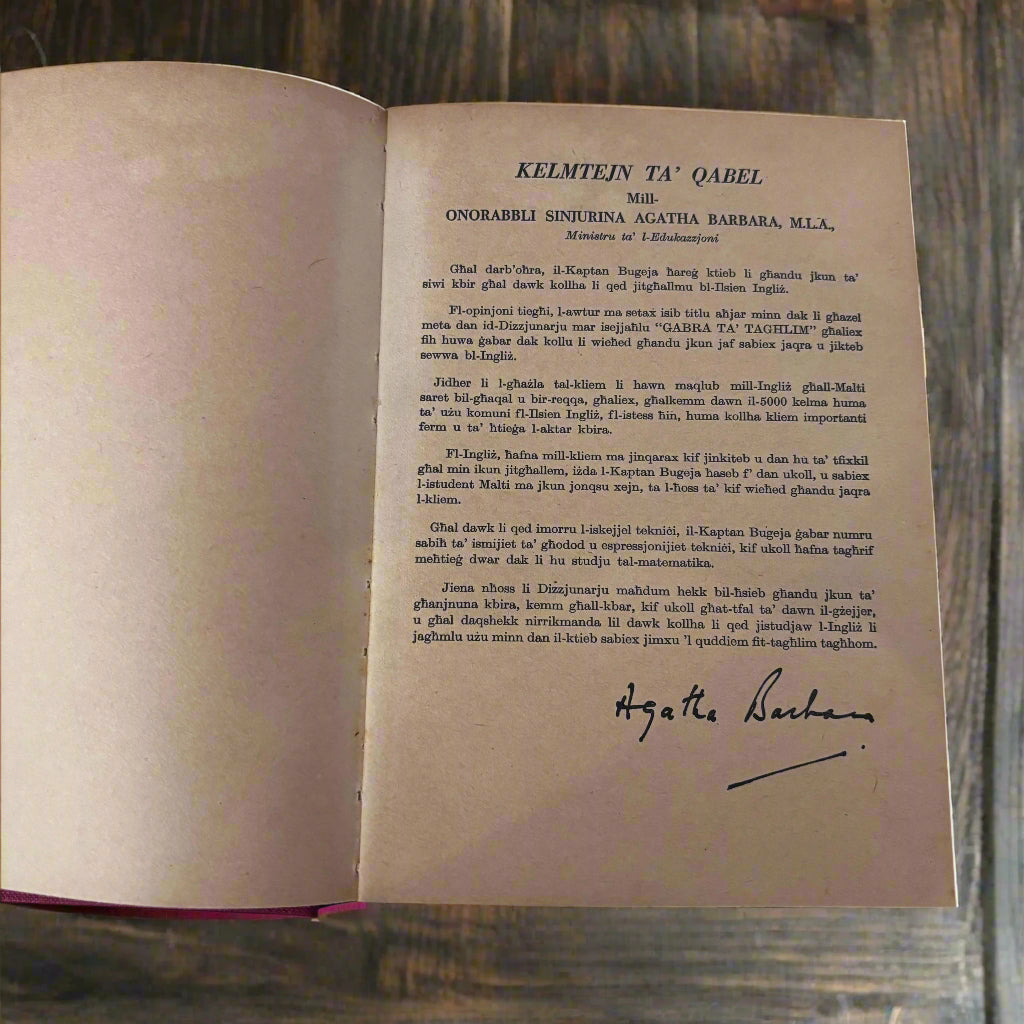 KELMTEJN TA' QABEL
Mill-
ONORABBLI SINJURINA AGATHA BARBARA, M.L.A.,
Ministru ta' l-Edukazzjoni
Għal darb'oħra, il-Kaptan Bugeja ħareġ ktieb li għandu jkun ta'
siwi kbir għal dawk kollha li qed jitgħallmu bl-Ilsien Ingliż.
Fl-opinjoni tiegħi, l-awtur ma setax isib titlu aħjar minn dak li għażel
meta dan id-Dizzjunarju mar isejjaħlu "GABRA TA' TAGHLIM" għaliex
fih huwa ġabar dak kollu li wieħed għandu jkun jaf sabiex jaqra u jikteb
sewwa bl-Ingliż.
Jidher li l-għażla tal-kliem li hawn maqlub mill-Ingliż għall-Malti
saret bil-għaqal u bir-reqqa, għaliex, għalkemm dawn il-5000 kelma huma
ta' użu komuni fl-Ilsien Ingliż, fl-istess ħin, huma kollha kliem importanti
ferm u ta' ħtieġa l-aktar kbira.
Fl-Ingliż, ħafna mill-kliem ma jinqarax kif jinkiteb u dan hu ta' tfixkil
għal min ikun jitgħallem, iżda l-Kaptan Bugeja ħaseb f' dan ukoll, u sabiex
l-istudent Malti ma jkun jonqsu xejn, ta l-ħoss ta' kif wieħed għandu jaqra
l-kliem.
Għal dawk li qed imorru l-iskejjel tekniċi, il-Kaptan Bugeja ġabar numru
sabiħ ta' ismijiet ta' għodod u espressjonijiet tekniċi, kif ukoll ħafna tagħrif
meħtieġ dwar dak li hu studju tal-matematika.
Jiena nħoss li Dizzjunarju maħdum hekk bil-ħsieb għandu jkun ta'
għanjnuna kbira, kemm għall-kbar, kif ukoll għat-tfal ta' dawn il-gżejjer,
u għal daqshekk nirrikmanda lil dawk kollha li qed jistudjaw l-Ingliż li
jagħmlu użu minn dan il-ktieb sabiex jimxu 'l quddiem fit-tagħlim tagħhom.
Agatha Barbara